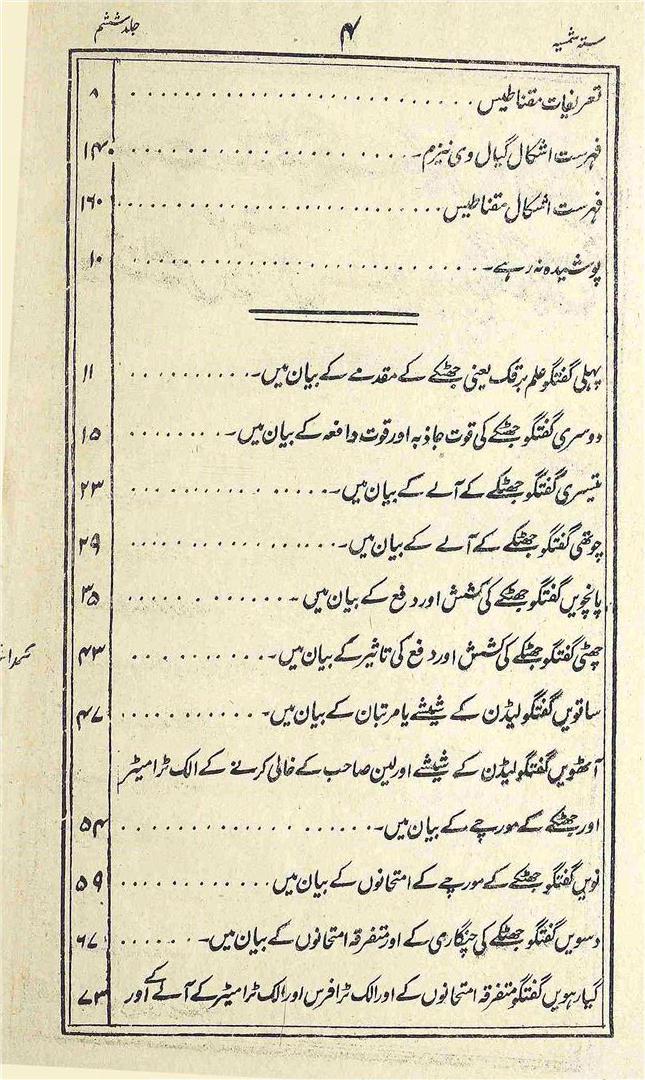 ستہ شمسیہ ۴ جلد ششم
تعریفات مقناطیس ۸
فہرست اشکال گیال وی نیزم ۱۴۰
فہرست اشکال مقناطیس ۱۶۰
پوشیدہ نہ رہے ۱۰
پہلی گفتگو علم برقک یعنی جھٹکے کے مقدمے کے بیان میں ۱۱
دوسری گفتگو جھٹکے کی قوت جاذبہ اور قوت دافعہ کے بیان میں ۱۵
تیسری گفتگو جھٹکے کے آلے کے بیان میں ۲۳
چوتھی گفتگو جھٹکے کے آلے کے بیان میں ۲۹
پانچویں گفتگو جھٹکے کی کشش اور دفع کے بیان میں ۳۵
چھٹی گفتگو جھٹکے کی کشش اور دفع کی تاثیر کے بیان میں ۴۳
ساتویں گفتگو لیڈن کے شیشے یا مرتبان کے بیان میں ۴۷
آٹھویں گفتگو لیڈن کے شیشے اور لین صاحب کے خالی کرنے کے الک ٹرامیٹر
اور جھٹکے کے مورچے کے بیان میں ۵۴
نویں گفتگو جھٹکے کے مورچے کے امتحانوں کے بیان میں ۵۹
دسویں گفتگو جھٹکے کی چنگاری کے اور متفرقہ امتحانوں کے بیان میں ۶۷
گیارہویں گفتگو متفرقہ امتحانوں کے اور الک ٹرافرس اور الک ٹرامیٹر کے آلے کے اور ۷۳